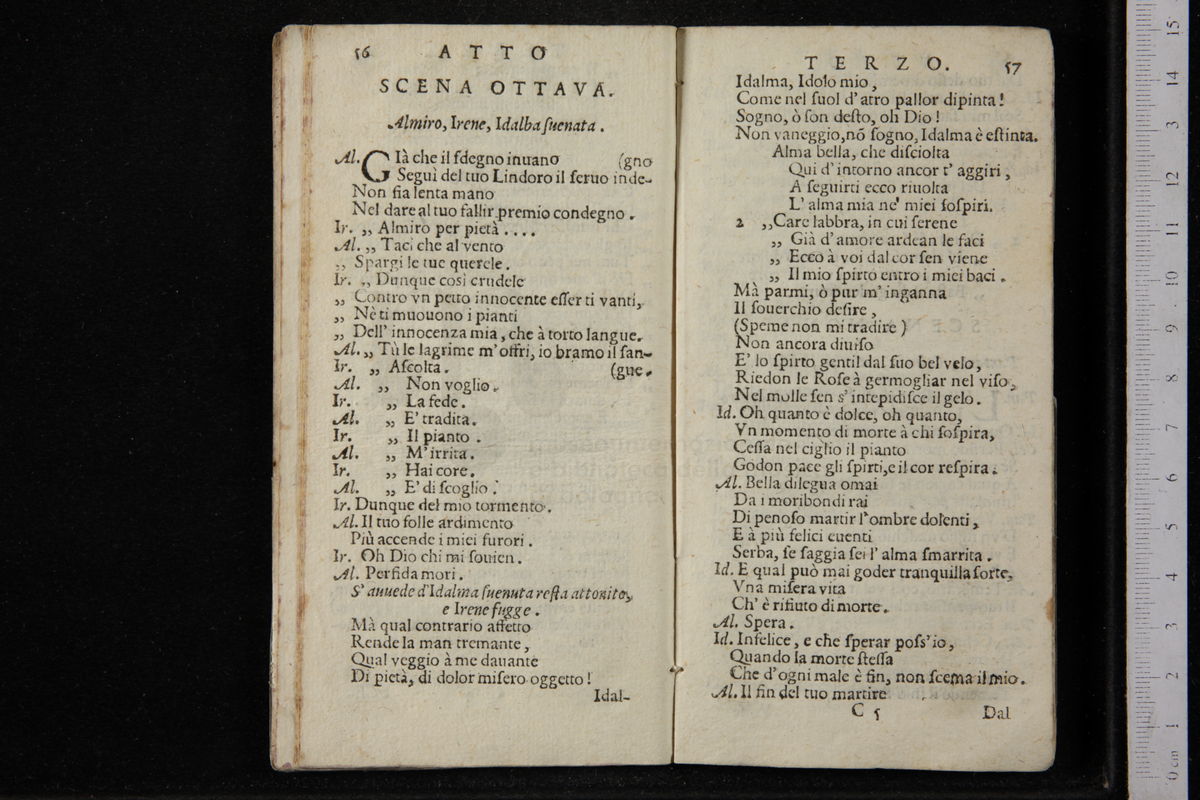 56 ATTO
SCENA OTTAVA.
Almiro, Irene, Idalba ſuenata.
Al. Già che il ſdegno inuano (gno
Seguì del tuo Lindoro il ſeruo inde-
Non fia lenta mano
Nel dare al tuo fallir premio condegno.
Ir. „ Almiro per pietà ....
Al. „ Taci che al vento
„ Spargi le tue querele.
Ir. „ Dunque così crudele
„ Contro vn petto innocente eſſer ti vanti,
„ Nè ti muouono i pianti
„ Dell' innocenza mia, che à torto langue.
Al. „ Tù le lagrime m'offri, io bramo il ſan-
Ir. „ Aſcolta. (gue.
Al. „ Non voglio.
Ir. „ La fede.
Al. „ E' tradita.
Ir. „ Il pianto.
Al. „ M'irrita.
Ir. „ Hai core.
Al. „ E' di ſcoglio.
Ir. Dunque del mio tormento.
Al. Il tuo folle ardimento
Più accende i miei furori.
Ir. Oh Dio chi mi ſouien.
Al. Perfida mori.
S' auuede d'Idalma ſuenuta reſta attonito,
e Irene fugge.
Mà qual contrario affetto
Rende la man tremante,
Qual veggio à me dauante
Di pietà, di dolor miſero oggetto!
Idal-
TERZO. 57
Idalma, Idolo mio,
Come nel ſuol d'atro pallor dipinta!
Sogno, ò ſon deſto, oh Dio!
Non vaneggio, nõ ſogno, Idalma è eſtinta.
Alma bella, che diſciolta
Qui d'intorno ancor t' aggiri,
A ſeguirti ecco riuolta
L' alma mia ne' miei ſoſpiri.
2 „Care labbra, in cui ſerene
„ Già d'amore ardean le faci
„ Ecco à voi dal cor ſen viene
„ Il mio ſpirto entro i miei baci.
Mà parmi, ò pur m'inganna
Il ſouerchio deſire,
(Speme non mi tradire)
Non ancora diuiſo
E' lo ſpirto gentil dal ſuo bel velo,
Riedon le Roſe à germogliar nel viſo,
Nel molle ſen s' intepidiſce il gelo.
Id. Oh quanto è dolce, oh quanto,
Vn momento di morte à chi ſoſpira,
Ceſſa nel ciglio il pianto
Godon pace gli ſpirti, e il cor reſpira.
Al. Bella dilegua omai
Da i moribondi rai
Di penoſo martir l'ombre dolenti,
E à più felici euenti
Serba, ſe ſaggia ſei l' alma ſmarrita.
Id. E qual può mai goder tranquilla ſorte,
Vna miſera vita
Ch' è rifiuto di morte.
Al. Spera.
Id. Infelice, e che ſperar poſs'io,
Quando la morte ſteſſa
Che d'ogni male è fin, non ſcema il mio.
Al. Il fin del tuo martire
C 5 Dal